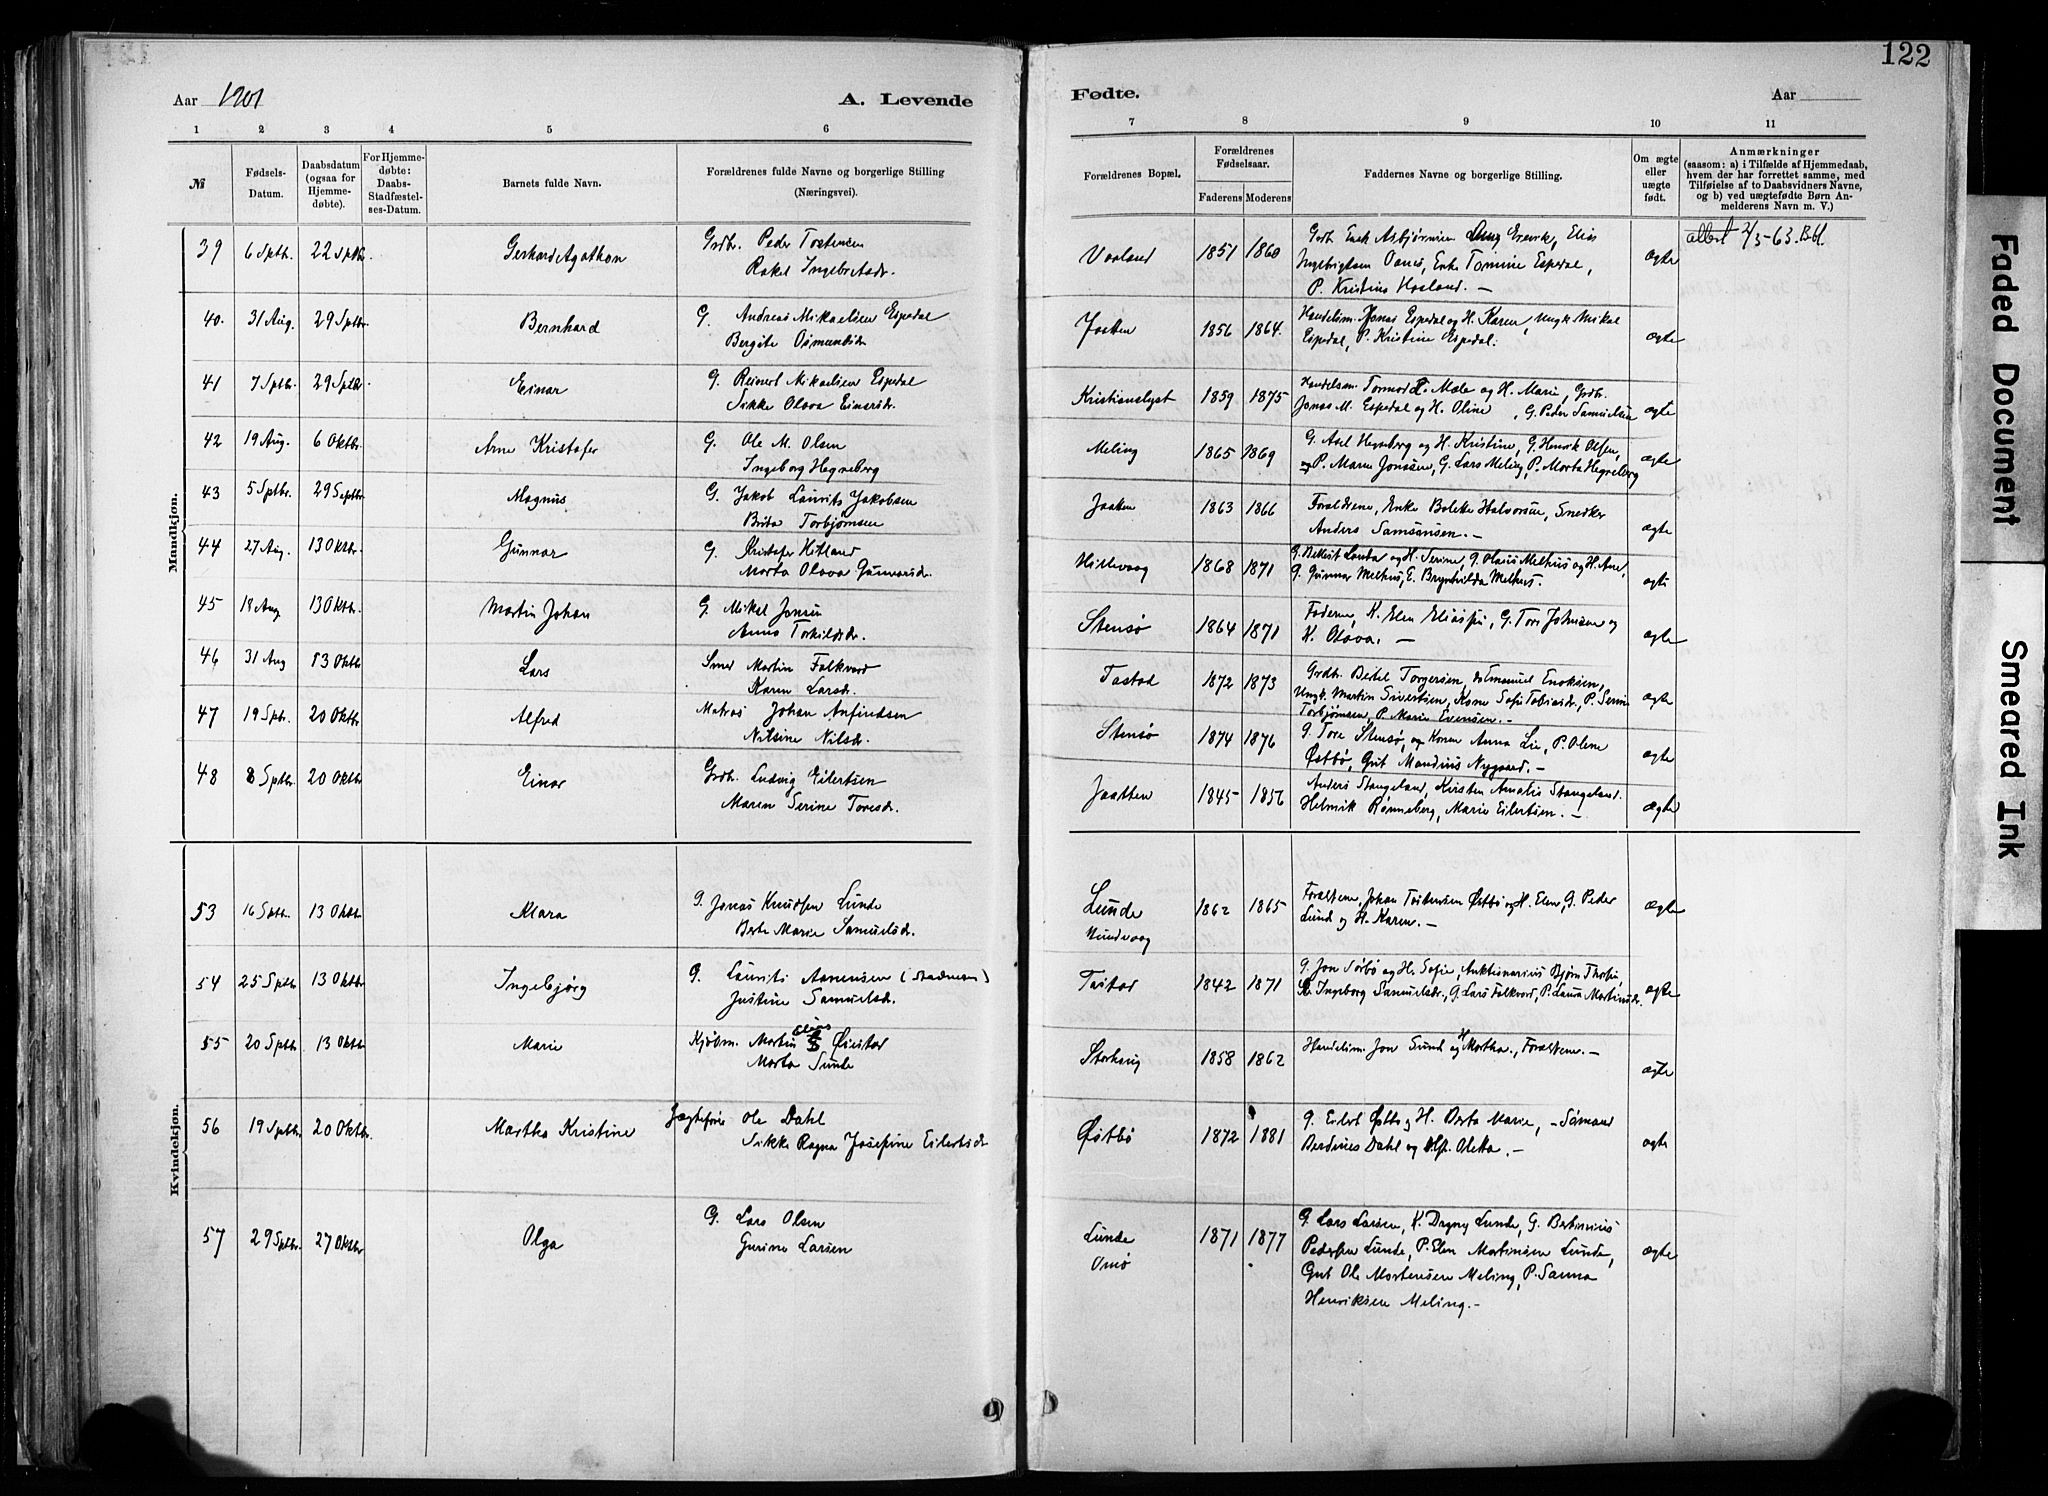 122
Aar 1901
A. Levende
Fødte.
Aar
1 2 3 4 5 6
7 8 9 10 11
№
Fødsels-Datum.
Daabsdatum (ogsaa for Hjemme-døbte).
For Hjemme-døbte: Daabs-Stadfæstel-ses-Datum.
Barnets fulde Navn.
Forældrenes fulde Navne og borgerlige Stilling (Næringsvei).
Forældrenes Bopæl.
Forældrenes Fødselsaar.
Faderens Moderens
Faddernes Navne og borgerlige Stilling.
Om ægte eller uægte født.
Anmærkninger (saasom: a) i Tilfælde af Hjemmedaab, hvem der har forrettet samme, med Tilføielse af to Daabsvidners Navne, og b) ved uægtefødte Børn An-melderens Navn m. V.)
Mandkjøn.
39 6 Sptb. 22 Sptb. Gerhard Agathon Grdb. Peder Tostensen
Rakel Ingebretsdr. Vaaland 1851 1860 Grdb Enok Asbjørnsen Erevik, Elias
Ingebrigtsen Oanes, Enke Tomine Espedal,
P. Kristine Haaland. — ægte attest 2/5-63. Bbl.
40. 31 Aug. 29 Sptbr. Bernhard G. Andreas Mikaelsen Espedal
Bergite Osmundsdr Jaatten 1856 1864. Handelsm. Jonas Espedal og H. Karen, Ungk Mikal
Espedal, P. Kristine Espedal. ægte
41 7 Sptbr. 29 Sptb. Einar G. Reinert Mikaelsen Espedal
Sikke Olava Einarsdr. Kristianslyst 1859 1875 Handelsm. Tormod T. Mæle og H. Marie, Grdb.
Jonas M. Espedal og H. Oline, G. Peder Samuelsen ægte
42 19 Aug. 6 Oktbr. Arne Kristofer G. Ole M. Olsen
Ingeborg Hegreberg Meling 1865 1869 G. Axel Hegreberg og H. Kristine, G. Henrik Olsen,
P. Maren Jonassen, G. Lars Meling, P. Marta Hegreberg ægte
43 5 Sptbr. 29 Septbr Magnus G. Jakob Laurits Jakobsen
Brita Torbjørnsen Jaatten 1863 1866 Forældrene, Enke Bolette Halvorsen, Snedker
Anders Samsonsen. — ægte
44 27 Aug. 13 Oktbr. Gunnar G. Kristofer Hetland
Marta Olava Gunnarsdr. Hillevaag 1868 1871 og H. Serine, G. Olaus Melhus og H. Ane,
G. Gunnar Melhus, E. Brynhilda Melhus. ægte
45 18 Aug 13 Oktbr. Martin Johan G. Mikal Jonsen
Anna Torkildsdr. Stensø 1864 1871 Faderen, K. Elen Eliassen, G. Tore Johnsen og
K. Olava. — ægte
46 31 Aug 13 Oktbr Lars Smed Martin Falkvard
Karen Larsdr. Tastad 1872 1873 Grdb. Betel Torgersen, Emanuel Enoksen,
Ungk. Martin Sivertsen, Kone Sofie Tobiasdr, P. Serine
Torbjørnsen, P. Marie Evensen. — ægte
47 19 Sptbr. 20 Oktbr. Alfred Matros Johan Anfindsen
Nilsine Nilsdr. Stensø 1874 1876 G. Tore Stensø, Konen Anna Lie, P. Olene
Østbø, Gut Mandius Nygaard. — ægte
48 8 Sptbr. 20 Oktbr Einar Grdb. Ludvig Eilertsen
Maren Serine Toresdr. Jaatten 1845 1856 Anders Stangeland, Kirsten Amalie Stangeland.
Helmik Rønneberg, Marie Eilertsen. — ægte
Kvindekjøn.
53 16 Sptbr. 13 Oktbr Klara G. Jonas Knudsen Lunde
Berte Marie Samuelsdr. Lunde
Hundvaag 1862 1865 Forældrene, Johan Tostensen Østbø og H. Elen, G. Peder
Lund og H. Karen. — ægte
54 25 Sptb 13 Oktbr. Ingebjørg G. Laurits Aanensen (Stadnesen)
Justine Samuelsdr. Tastad 1842 1871 G. Jon Sørbø og H. Sofie, Auktionarius Bjørn Thorsen,
Ingeborg Samuelsdr, G. Lars Falkvard, P. Laura Martinsdr. ægte
55 20 Sptb 13 Oktbr Marie Kjøbm. Martin Elias Østad
Marta Sunde Storhaug 1858 1862 Handelsm. Jon Sund og H Martha, Forældrene. — ægte
56 19 Sptbr. 20 Oktbr. Martha Kristine Jægtefører Ole Dahl
Sikke Ragna Josefine Eilertsdr Østbø 1872 1881 G. Eilert Østbø og H. Berta Marie, — Sømand
Berdines Dahl og Olette. — ægte
57 29 Sptbr. 27 Oktbr Olga G. Lars Olsen
Gurine Larsen Lunde
Omø 1871 1877 G. Lars Larsen, K. Dagny Lunde, G. Bertinius
Pedersen Lunde, P. Elen Martinsen Lunde,
Gut Ole Mortensen Meling, P. Sanna
Henriksen Meling. — ægte
Faded Document
Smeared Ink